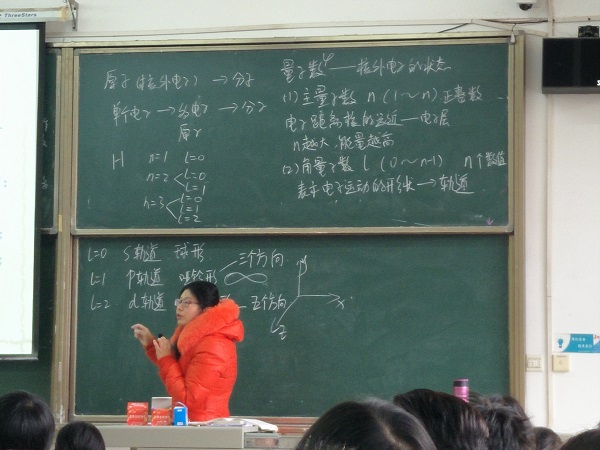 ThreeStars
原子(核外电子) → 分子
单电子 → 多电子 → 分子
原子
H n=1 l=0
n=2 l=0
l=1
n=3 l=0
l=1
l=2
量子数 ψ — 核外电子的状态
(1) 主量子数 n (1~n) 正整数
电子距离核的远近—电子层
n越大,能量越高
(2) 角量子数 l (0~n-1) n个数值
表示电子运动的形状 → 轨道
l=0 s轨道 球形
l=1 p轨道 哑铃形 三个方向
l=2 d轨道 五个方向
y
x
z